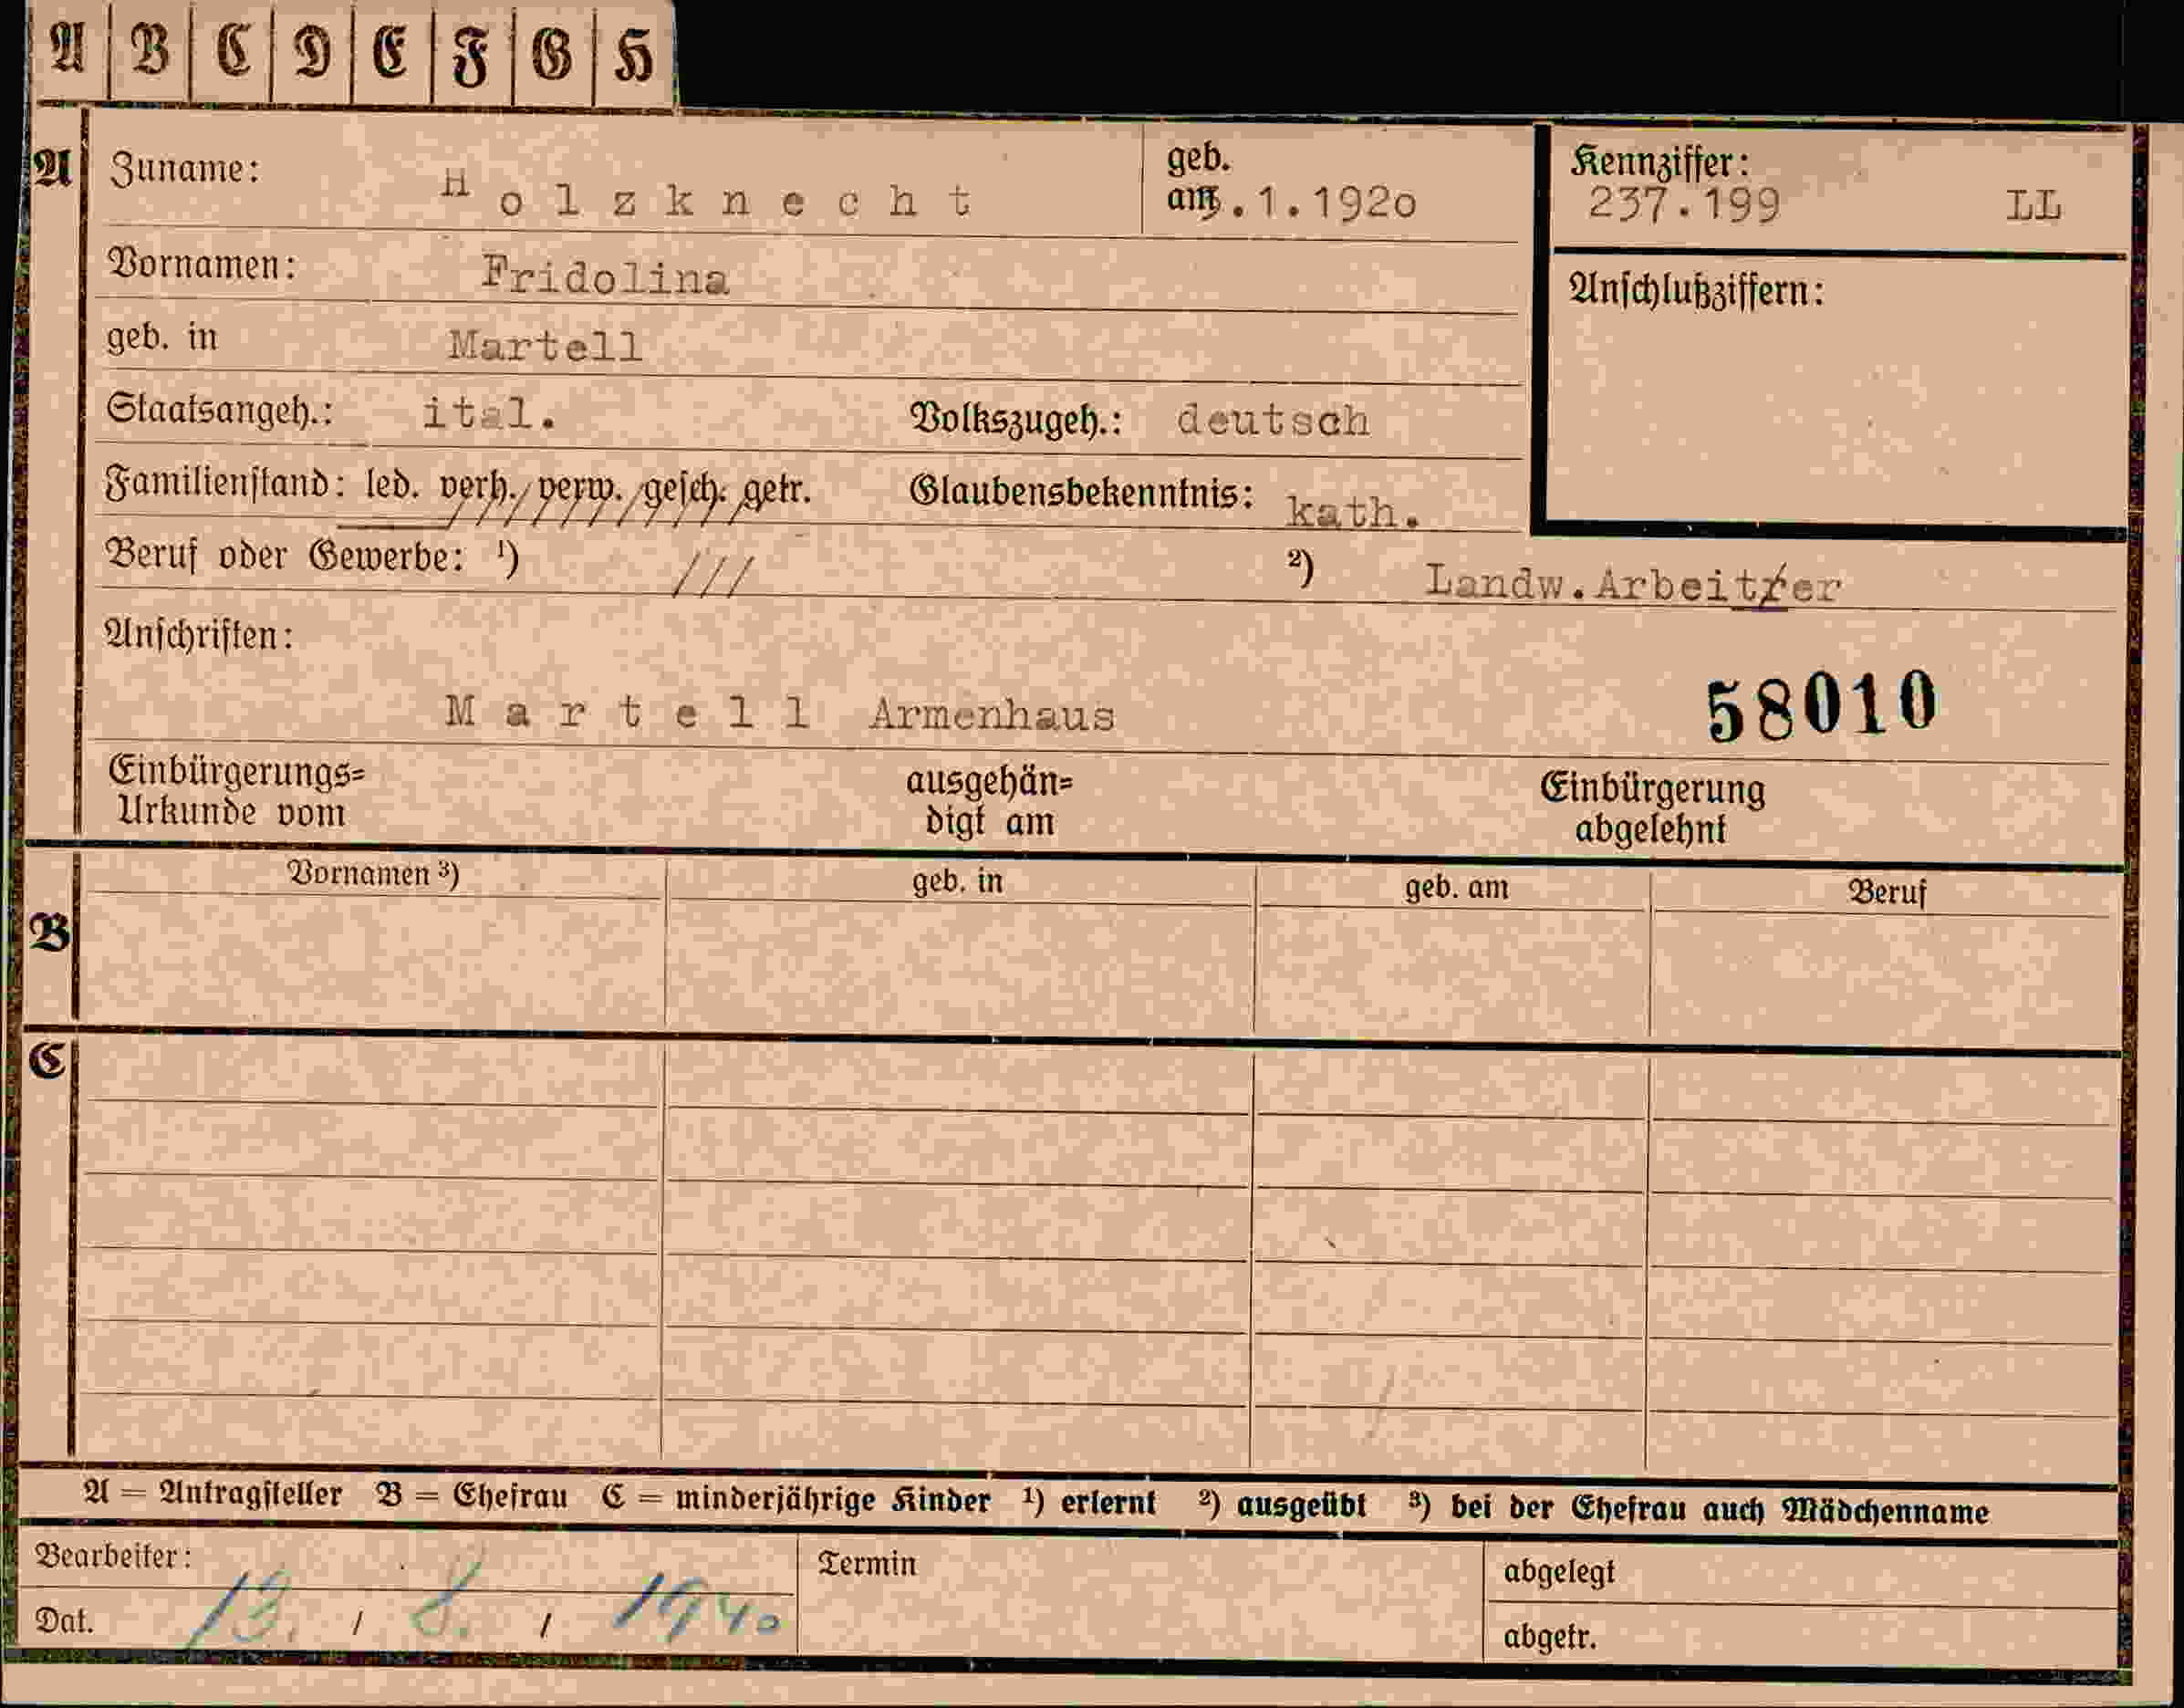 A B C D E F G H
A Zuname: Holzknecht geb. am .1.1920 Kennziffer: 237.199 LL
Vornamen: Fridolina Anschlußziffern:
geb. in Martell
Staatsangeh.: ital. Volkszugeh.: deutsch
Familienstand: led. verh. verw. gesch. getr. Glaubensbekenntnis: kath.
Beruf oder Gewerbe: ¹) /// ²) Landw.Arbeiter
Anschriften:
Martell Armenhaus 58010
Einbürgerungs= ausgehän= Einbürgerung
Urkunde vom digt am abgelehnt
Vornamen ³) geb. in geb. am Beruf
B
C
A = Antragsteller B = Ehefrau C = minderjährige Kinder ¹) erlernt ²) ausgeübt ³) bei der Ehefrau auch Mädchenname
Bearbeiter: Termin abgelegt
Dat. 13. / 8. / 1940 abgetr.